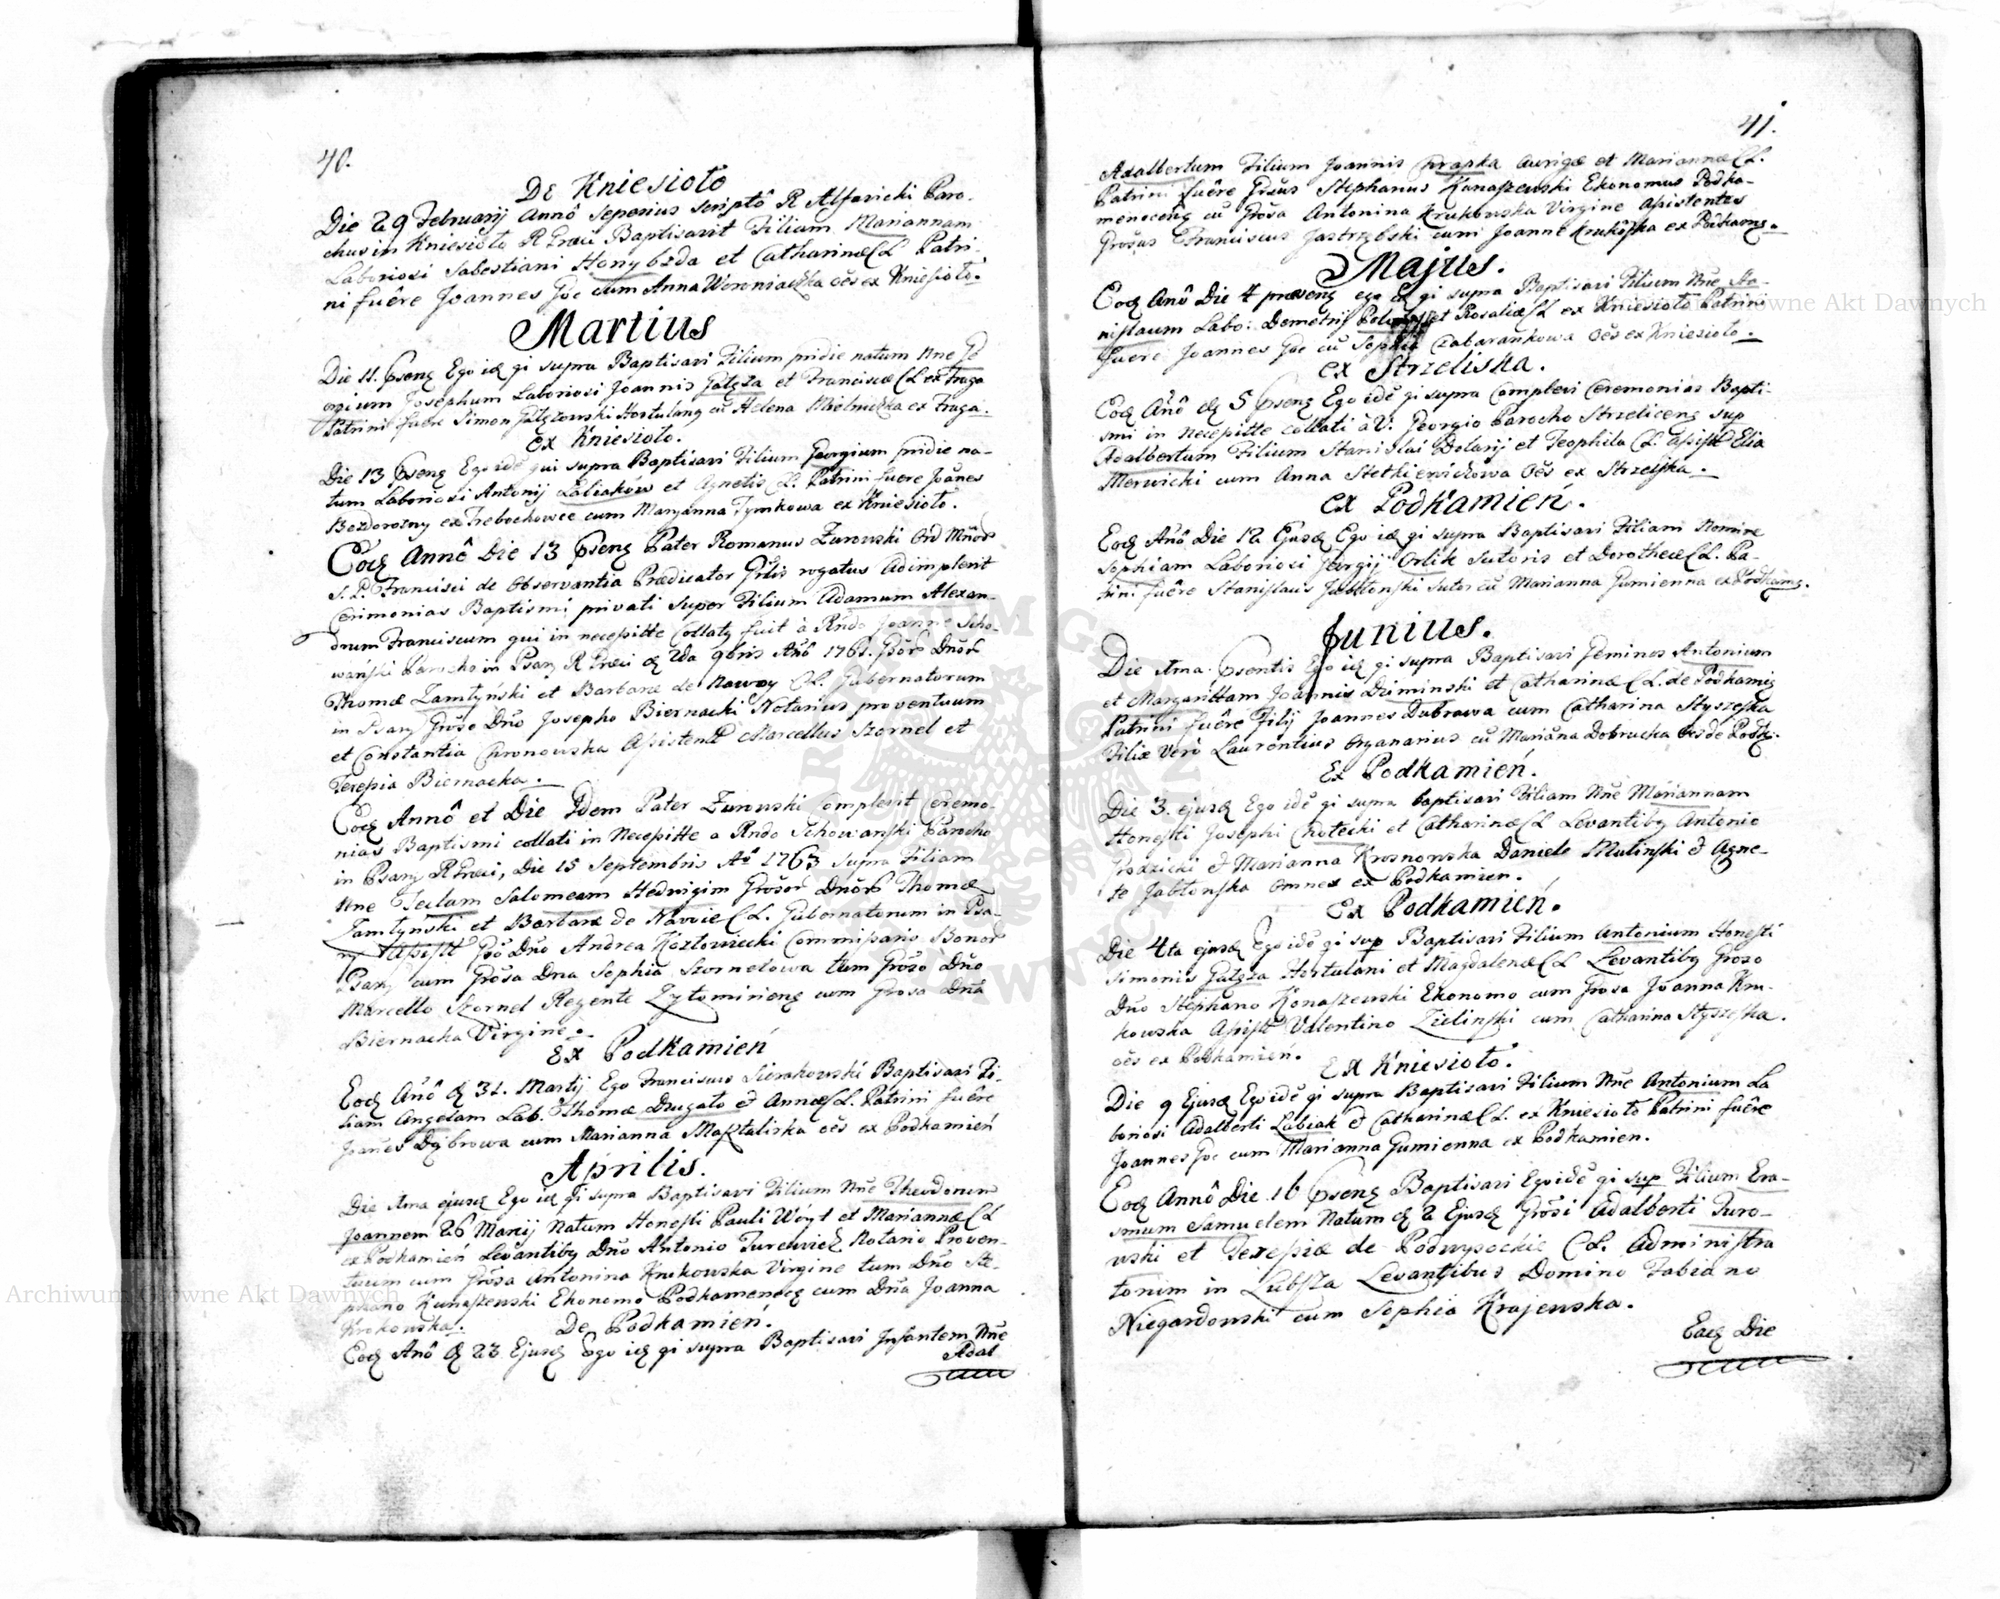 40.
De Kniesioło
Die 29 Februarij Annô seperius scriptô R Alfavicki Paro-
chus in Kniesioło R Græci Baptisavit Filiam Mariannam
Laboriosi Sabestiani Honybzda et Catharinæ CL Patri-
ni fuêre Joannes Joc cum Anna Woroniaczka oẽs ex Kniesioło.
Martius
Die 11. Psens Ego id qi supra Baptisavi Filium pridie natum Nne
Josephum Laboriosi Joannis Gałęza et Franciscæ CL ex Fraga
Patrini fuêre Simon Gałęzowski Hortulang cũ Helena Mielniczka ex Fraga.
ex Kniesioło.
Die 13 Psens Ego idẽ qui supra Baptisavi Filium Georgium pridie na-
tum Laboriosi Antonij Laliaków et Agnetis CL. Patrini fuere Joães
Bezdorozny ex Trebochowce cum Maryanna Tymkowa ex Kniesioło.
Eod Annô Die 13 Psens Pater Romanus Zurowski Ord Mñor
S. P. Francisci de Observantia Prædicator Gñlis rogatus Adimplevit
Cerimonias Baptismi privati super Filium Adamum Alexan-
drum Franciscum qui in necessitte Collatg fuit à Rñdo Joanne Scho-
wański Parocho in Psary R Græci d 2da 9bris Añô 1761. Gsor Dñor
Thomæ Zamłyński et Barbaræ de Nawoy CL. Gubernatorum
in Psary Grõso Dño Josepho Biernacki Notarius proventuum
et Constantia Chronowska Assistent Marcellus Szornel et
Teressia Biernacka.
Eod Annô et Die Idem Pater Zurowski Complevit Ceremo-
nias Baptismi collati in Necessitte a Rndo Schowanski Parocho
in Psary R Græci, Die 15 Septembris Aô 1763 supra Filiam
Nne Teclam Salomeam Hedvigim Grosor Dnõr Thomæ
Zamłynski et Barbaræ de Nawoie CL. Gubernatorum in Psa-
ry Assist Gsõ Dño Andrea Kozłowiecki Commissario Bonor
Psary cum Grõsa Dna Sophia Szornelowa tum Grõso Dño
Marcello Szornel Regente Zytomiriens cum Grosa Dña
Biernacka Virgine.
Ex Podkamień
Eod Añô d 31. Martij Ego Franciscus Sierakowski Baptisavi Fi-
liam Angelam Lab. Thomæ Drugato et Annæ CL. Patrini fuêre
Joañes Dąbrowa cum Marianna Masztaliska oẽs ex Podkamień
Aprilis.
Die 1ma ejusd Ego id qi supra Baptisavi Filium Nñe Theodorum
Joannem 26 Martij Natum Honesti Pauli Woyt et Mariannæ CL
ex Podkamień Levantiby Dño Antonio Turewicz Notario Proven-
tuum cum Grõsa Antonina Krukowska Virgine tum Dño Ste-
phano Kunaszewski Ekonomo Podkamenecg cum Dña Joanna
Krokowska.
De Podkamień.
Eod Anô d 23 Ejusd Ego id qi supra Baptisavi Infantem Nñe
Adal
41.
Adalbertum Filium Joannis Chrapka Aurigæ et Mariannæ CL.
Patrini fuêre Grsus Stephanus Kunaszewski Ekonomus Podka-
menoceng cũ Grõsa Antonina Krukowska Virgine Assistentes
Grosus Franciscus Jastrzębski cum Joanne Krukowska ex Podkams.
Majus.
Eod Anô Die 4 præsens ego id qi supra Baptisavi Filium Nñe Sta-
nislaum Labo: Demetrij et Rosaliæ CL ex Kniesioło Patrini
fuere Joannes Joc cũ Sophia Czabarankowa oẽs ex Kniesioło.
ex Strzeliska.
Eod Añô d 5 Psens Ego idẽ qi supra Complevi Ceremonias Bapti-
smi in necessitte collati à V. Georgio Parocho Strzeliceng sup
Adalbertum Filium Stanislai Dolarij et Teophila CL. Assist Elia
Merwicki cum Anna Stetkiewiczowa oẽs ex Strzeliska.
ex Podkamień.
Eod Añô Die 12 Ejusd Ego id qi supra Baptisavi Filiam Nomine
Sophiam Laboriosi Georgij Orlik Sutoris et Dorotheæ CL. Pa-
trini fuêre Stanislaus Jabłonski Sutor cũ Marianna Gumienna ex Podkams.
Junius.
Die 1ma Psentis Ego id qi supra Baptisavi Geminos Antonium
et Margarittam Joannis Driminski et Catharinæ CL. de Podkamig
Patrini fuêre Filij Joannes Dubrawa cum Catharina Styszeska
Filiæ Vero Laurentius Organarius cũ Mariãna Dobrucka oẽs de Podk.
Ex Podkamień.
Die 3. ejusd Ego idẽ qi supra baptisavi Filiam Nñe Mariannam
Honesti Josephi Chotecki et Catharinæ CL Levantiby Antonio
Grodzicki et Marianna Krosnowska Daniele Mulinski et Agne-
te Jabłonska omnes ex Podkamien.
Ex Podkamień.
Die 4ta ejusd Ego idẽ qi sup Baptisavi Filium Antonium Honesti
Simonis Gałęza Hortulani et Magdalenæ CL Levantiby Grõso
Dño Stephano Konaszewski Ekonomo cum Grosa Joanna Kru-
kowska Assist Valentino Zielinski cum Catharina Styszeska.
oẽs ex Podkamień.
Ex Kniesioło.
Die 9 Ejusd Ego idẽ qi supra Baptisavi Filium Nñe Antonium La
boriosi Adalberti Labiak et Catharinæ CL. ex Kniesioło Patrini fuêre
Joannes Joc cum Marianna Gumienna ex Podkamien.
Eod Annô Die 16 Psens Baptisavi Ego idẽ qi sup Filium Era-
smum Samuelem Natum d 2 Ejusd Grõsi Adalberti Turo-
wski et Teressiæ de Podwysockie CL. Administra
torum in Lubsza Levantibus Domino Fabiano
Niegardowski cum Sophia Krajewska.
Eod Die
Archiwum Główne Akt Dawnych